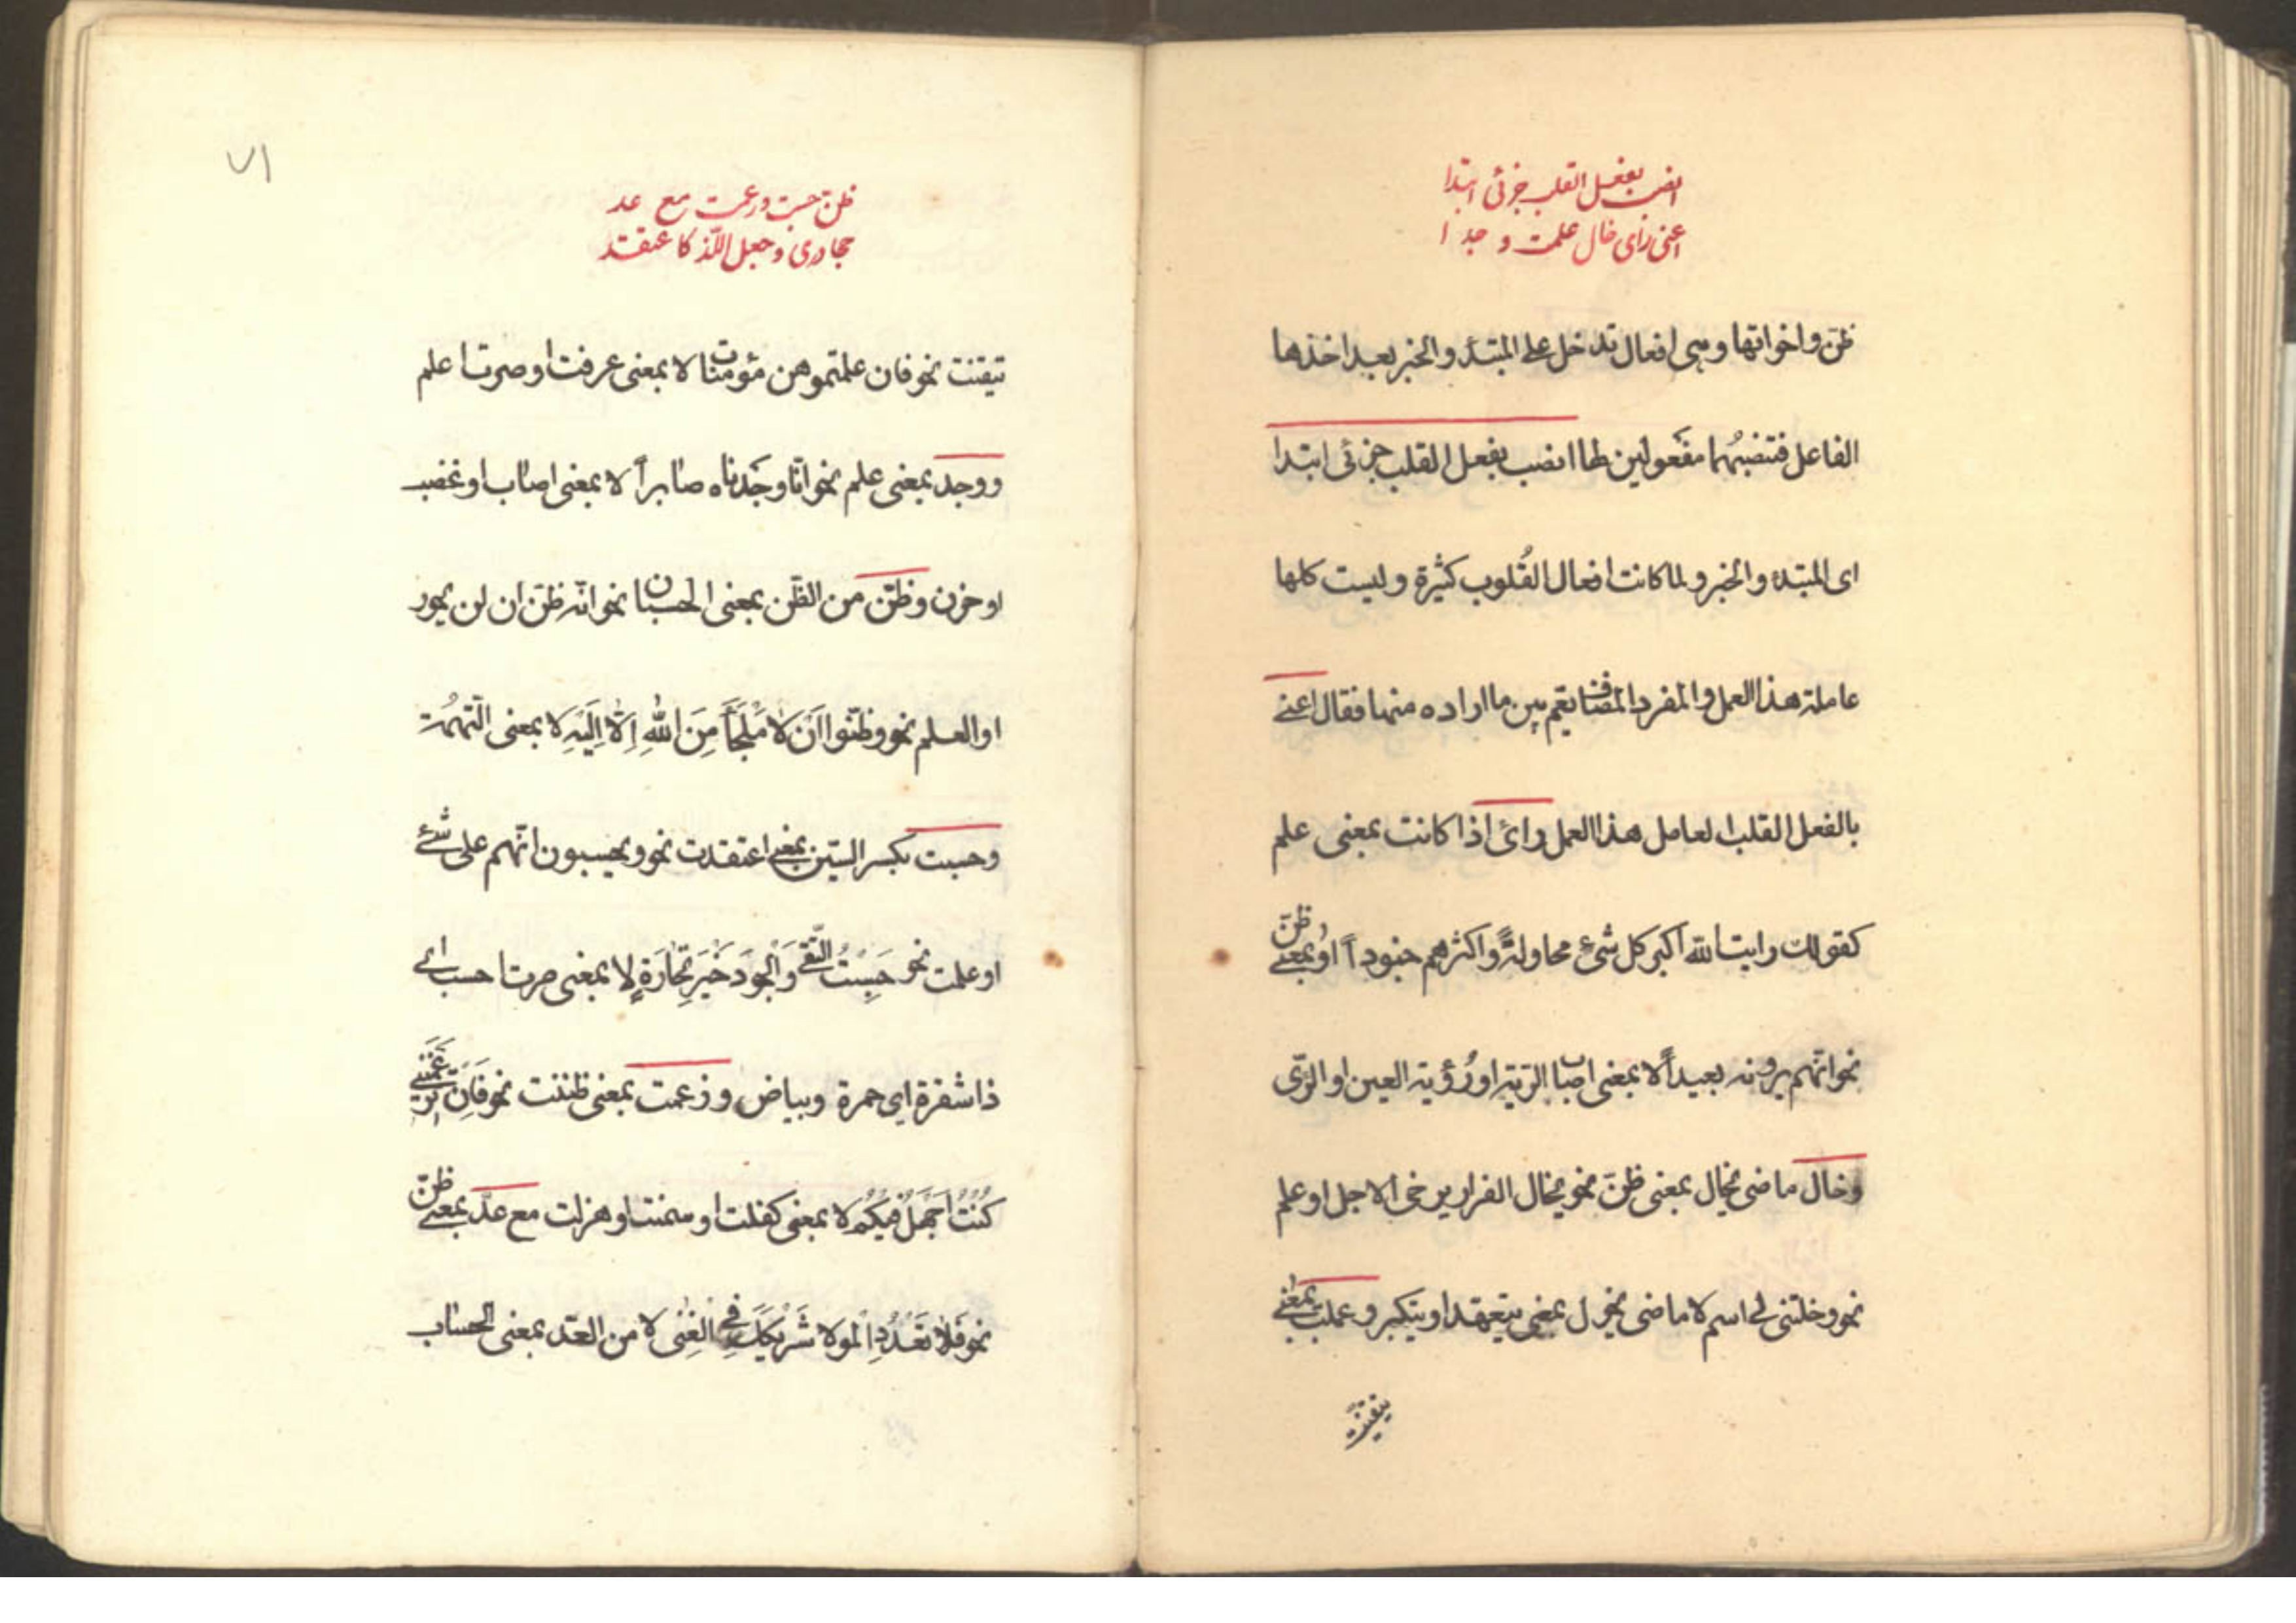 انصب بفعل القلب جزئی ابتدا
اعنی رأی خال علمت وجدا
ظن واخواتها وهی افعال تدخل علی المبتدأ والخبر بعد اخذها
الفاعل فتنصبهما مفعولین لها انصب بفعل القلب جزئی ابتدا
ای المبتدء والخبر ولما کانت افعال القُلوب کثیرة ولیست کلها
عاملة هذا العمل والمفرد المضاف یعّم بین ما اراده منها فقال اعنی
بالفعل القلب العامل هذا العمل رأی اذا کانت بمعنی علم
کقولک رایت الله اکبر کل شیء محاولةً واکثرهم جنوداً او بمعنی ظنّ
نحو انّهم یرونه بعیداً لا بمعنی اصاب الریة او رُؤیة العین او الرّی
وخال ماضی یخال بمعنی ظنّ نحو یخال الفرار یرخی الاجل او علم
نحو وخلتنی لی اسم لا ماضی یخول بمعنی یتعهد او یتکبر وعلمت بمعنی
تیقنت
۷۱
ظن حسبت وزعمت مع عد
حجا دری وجعل اللّذ کاعتقد
تیقنت نحو فان علمتموهن مؤمنات لا بمعنی عرفت او صرت اعلم
ووجد بمعنی علم نحو انّا وجَدناه صابراً لا بمعنی اصاب او غضب
او حزن وظنّ من الظّن بمعنی الحسبان نحو انّه ظنّ ان لن یحور
او العلم نحو وظنّوا اَن لا مَلْجَأَ مِنَ اللّٰهِ اِلّا اِلَیْهِ لا بمعنی التّهمُة
وحسبت بکسر السّین بمعنی اعتقدت نحو ویحسبون انّهم علی شیء
او علمت نحو حَسِبْتُ التُّقی وَالْجُودَ خَیْرَ تِجارَةٍ لا بمعنی صرت احسب ای
ذا شقرة ای حمرة وبیاض وزعمت بمعنی ظننت نحو فَاِنْ تَزْعَمینی
کُنْتُ اَجْهَلُ فیکُمْ لا بمعنی کفلت او سمنت او هزلت مع عدّ بمعنی ظنّ
نحو فَلا تَعْدُدِ المولا شَریکَکَ فِی الغِنٰی لا من العدّ بمعنی الحساب